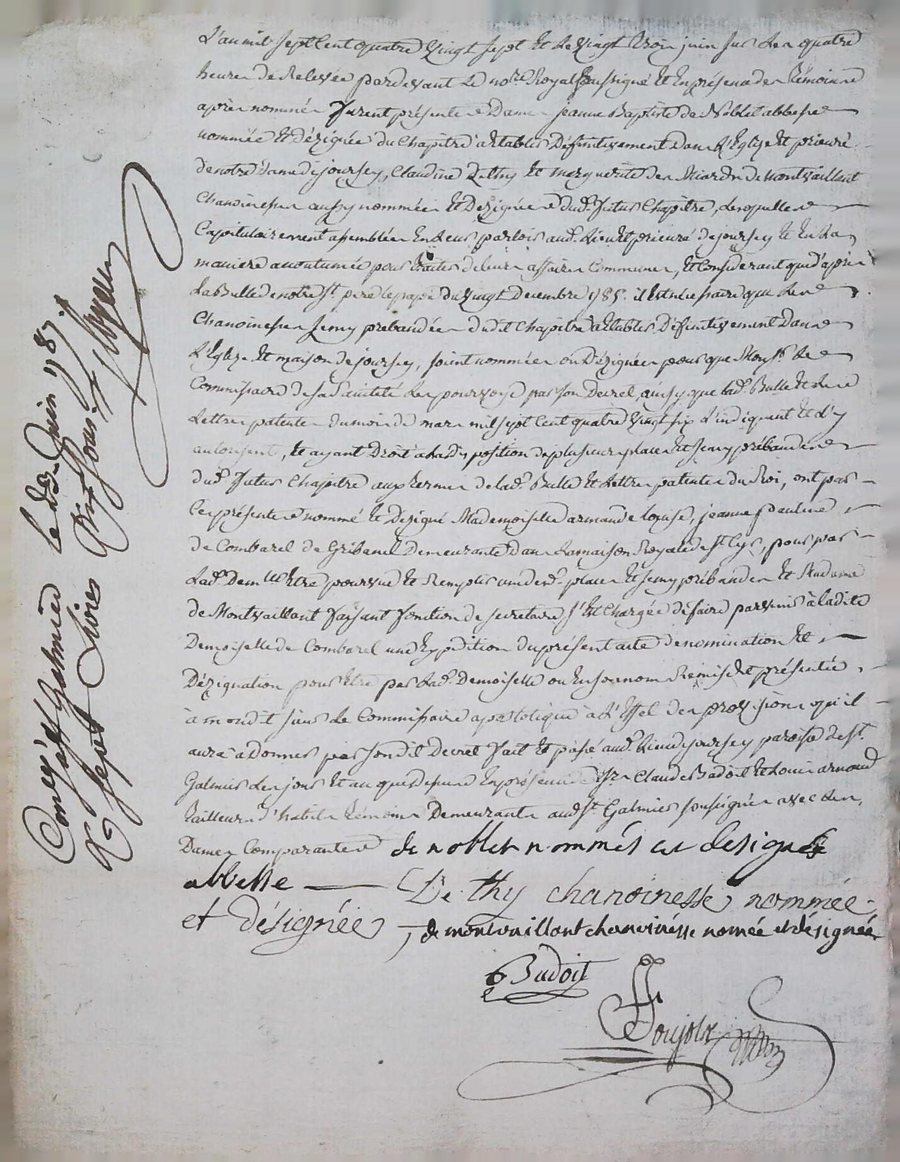 L'an mil sept Cent quatre vingt sept Et le vingt trois juin sur les quatre
heures de Relevée pardevant le nore. Royal soussigné Et En présence des Témoins
après nommés furent présentes Dames jeanne Baptiste de Noblet abbesse
nommée et dézignée du Chapitre à établir Définitivement dans L'Eglise et prieuré
de notre dame de joursey, Claudine De thy et marguerite des Micards de Montvaillant
Chanoinesses aussy nommées et Dézignées dud. futur Chapitre, Lesquelles
Capitulairement assemblées En leurs parloir aud. Lieu et prieuré de joursey et En la
maniere accoutumée pour traiter de leurs affaires Communes, Et Considerant que d'après
La Bulle de notre St. pere le pape du vingt Decembre 1785. il Est necessaire que Les
Chanoinesses semy prebandées dudit Chapitre à Etablir Définitivement Dans
L'Eglise et maison de joursey, soient nommées ou Dézignées pour que Monsr. Le
Commissaire de sa Sainteté les pourvoye par son Decret, ainsy que lad. Bulle et les
Lettres patentes du mois de mars mil sept cent quatre vingt six L'indiquent et L'y
autorisent, et ayant Droit à la disposition de plusieurs places et semy prébandes
dud. futur Chapitre aux termes de lad. Bulle et Lettres patentes du Roi, ont par
Ces présentes nommé et Dézigné Mademoiselle armande Louise, jeanne pauline
de Combarel de Gibanel Demeurante dans la maison Royale de St. Cyr, pour par
lad. Demlle Etre pourvue et Remplir une des. places et semy prébandes et Madame
de Montvaillant faisant fonction de secretaire s'Est Chargée de faire parvenir à ladite
Demoiselle de Combarel une Expédition du présent acte de nomination et
Dézignation pour Etre par lad. Demoiselle ou En son nom Remise et présentée
à mondit sieur Le Commissaire apostolique à L'Effet des provisions qu'il
aura à donner par son dit Decret fait et passé aud. Lieu de joursey paroisse de St.
Galmier les jour et an que dessus En présence de sr. Claude Badoit et Louis arnaud
tailleur d'habits témoins Demeurants aud. St. Galmier soussignés avec les
Dames Comparantes de noblet nommés et designée
abbesse De thy chanoinesse nommée
et désignée, de montvaillant chanoinesse nomée et désignée
Badoit
Ponjolx
Conlé à St Galmier le 23. Juin 1787.
R. sept Livres Dix sous